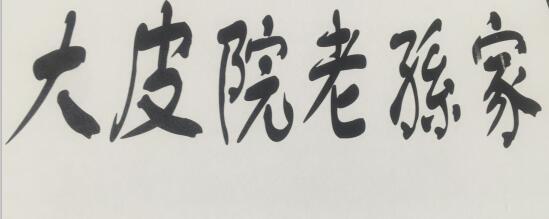 大皮院老孫家